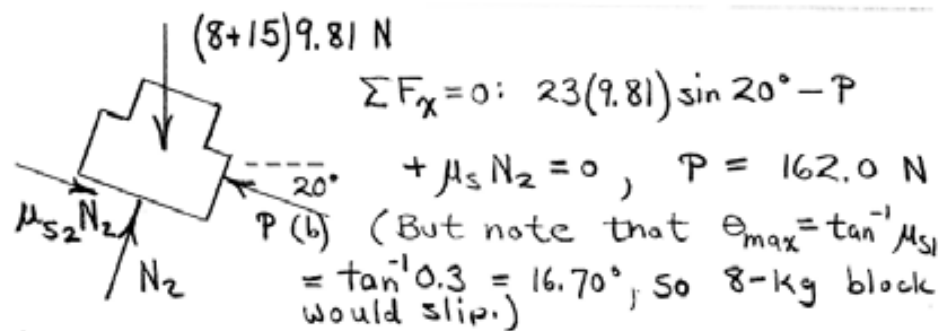 (8+15)9.81 N
ΣFₓ=0: 23(9.81) sin 20° – P
+ μₛN₂ = 0, P = 162.0 N
20°
μₛ₂N₂
P (b)
N₂
(But note that θₘₐₓ = tan⁻¹ μₛ₁
= tan⁻¹ 0.3 = 16.70°, so 8-kg block
would slip.)